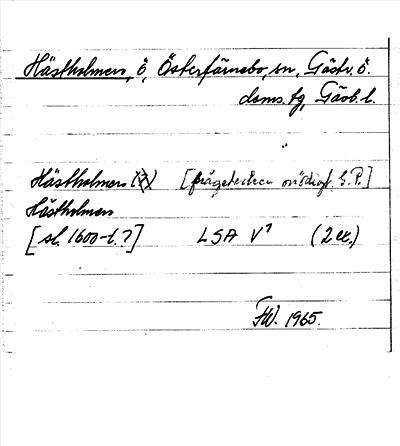 Hästholmen, ö, Österfärnebo, sn, Gästr. ö.
doms.tg, Gävb. l.
Hästholmen (?) [frågetecken onödigt. S.P.]
Hästholmen
[sl. 1600-t.?] LSA V¹ (2 ex.)
FW. 1965.